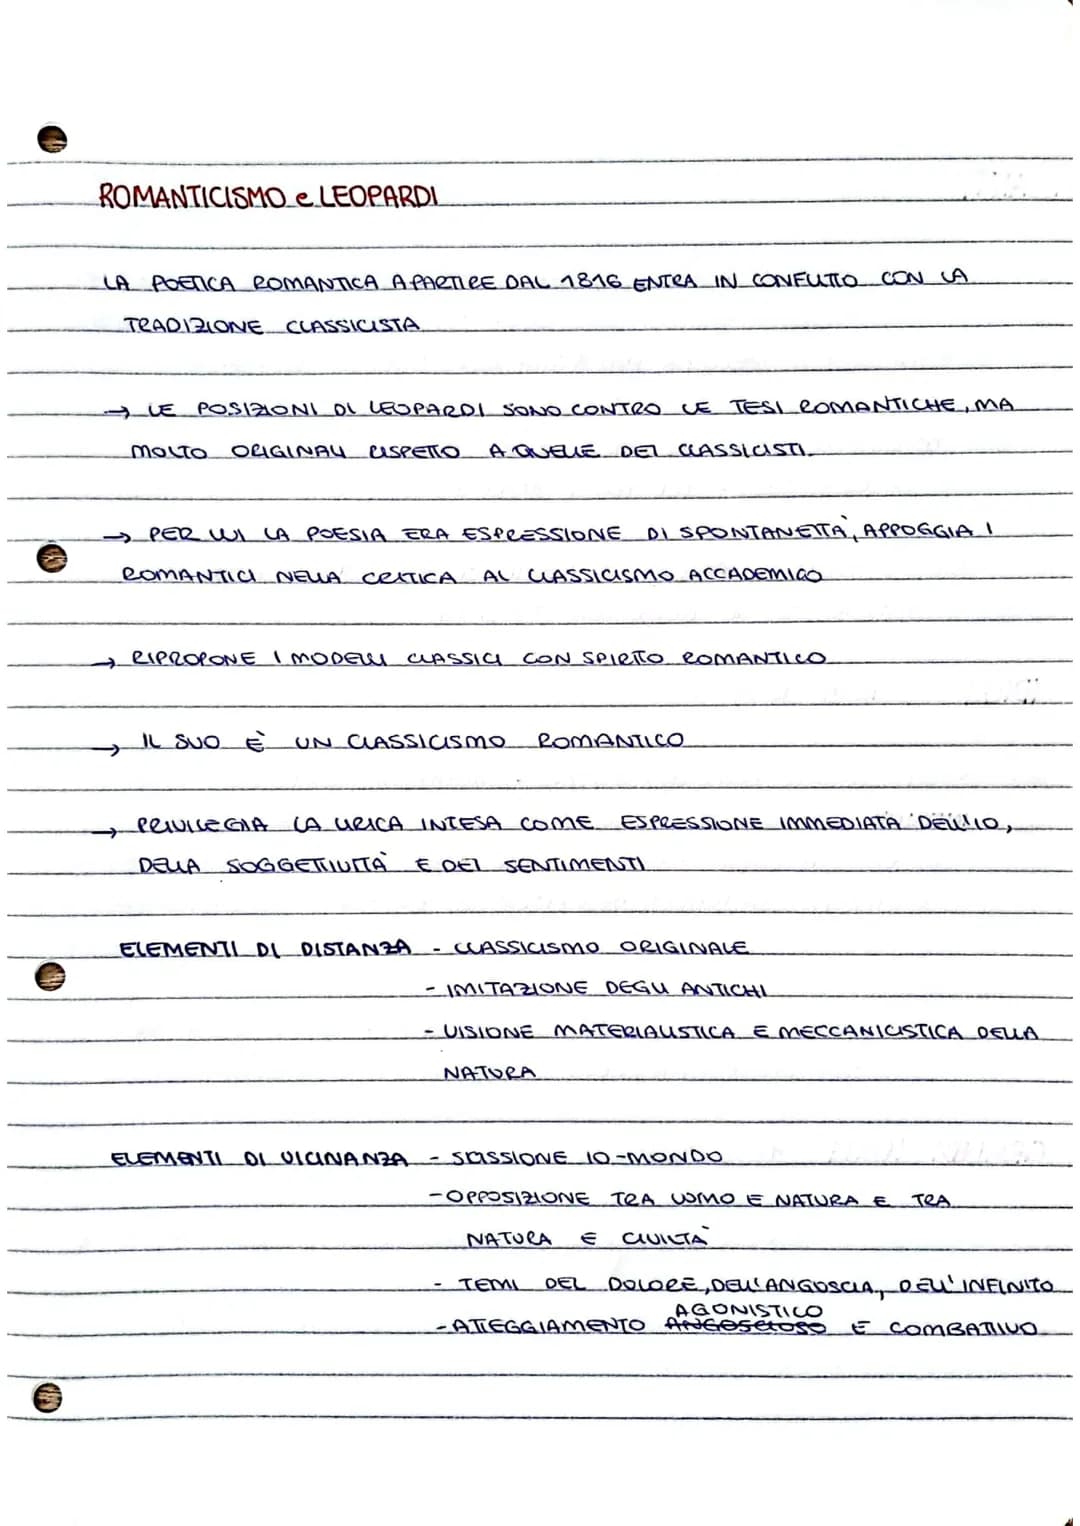 ROMANTICISMO e LEOPARDI
LA POETICA ROMANTICA A PARTIRE DAL 1816 ENTRA IN CONFLITTO CON LA
TRADIZIONE CLASSICISTA
→ LE POSIZIONI DI LEOPARDI SONO CONTRO LE TESI ROMANTICHE, MA
MOLTO ORIGINALI RISPETTO A QUELLE DEI CLASSICISTI.
→ PER LUI LA POESIA ERA ESPRESSIONE DI SPONTANEITÀ, APPOGGIA I
ROMANTICI NELLA CRITICA AL CLASSICISMO ACCADEMICO
→ RIPROPONE I MODELLI CLASSICI CON SPIRITO ROMANTICO
→ IL SUO È UN CLASSICISMO ROMANTICO
→ PRIVILEGIA LA LIRICA INTESA COME ESPRESSIONE IMMEDIATA DELL'IO,
DELLA SOGGETTIVITÀ E DEI SENTIMENTI
ELEMENTI DI DISTANZA - CLASSICISMO ORIGINALE
- IMITAZIONE DEGLI ANTICHI
- VISIONE MATERIALISTICA E MECCANICISTICA DELLA
NATURA
ELEMENTI DI VICINANZA - SCISSIONE IO-MONDO
- OPPOSIZIONE TRA UOMO E NATURA E TRA
NATURA E CIVILTÀ
- TEMI DEL DOLORE, DELL'ANGOSCIA, DELL'INFINITO
AGONISTICO
- ATTEGGIAMENTO ANGOSCIOSO E COMBATTIVO